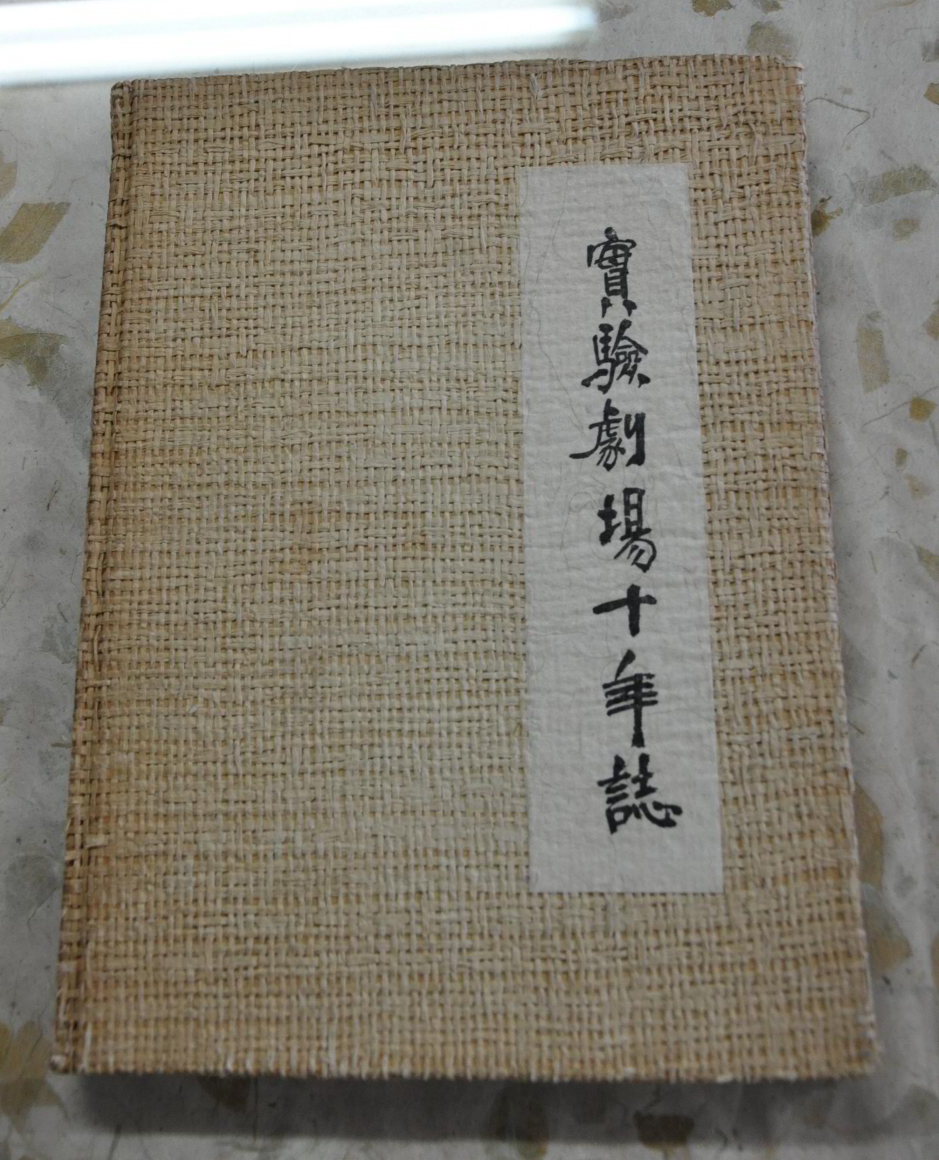 實驗劇場十年誌